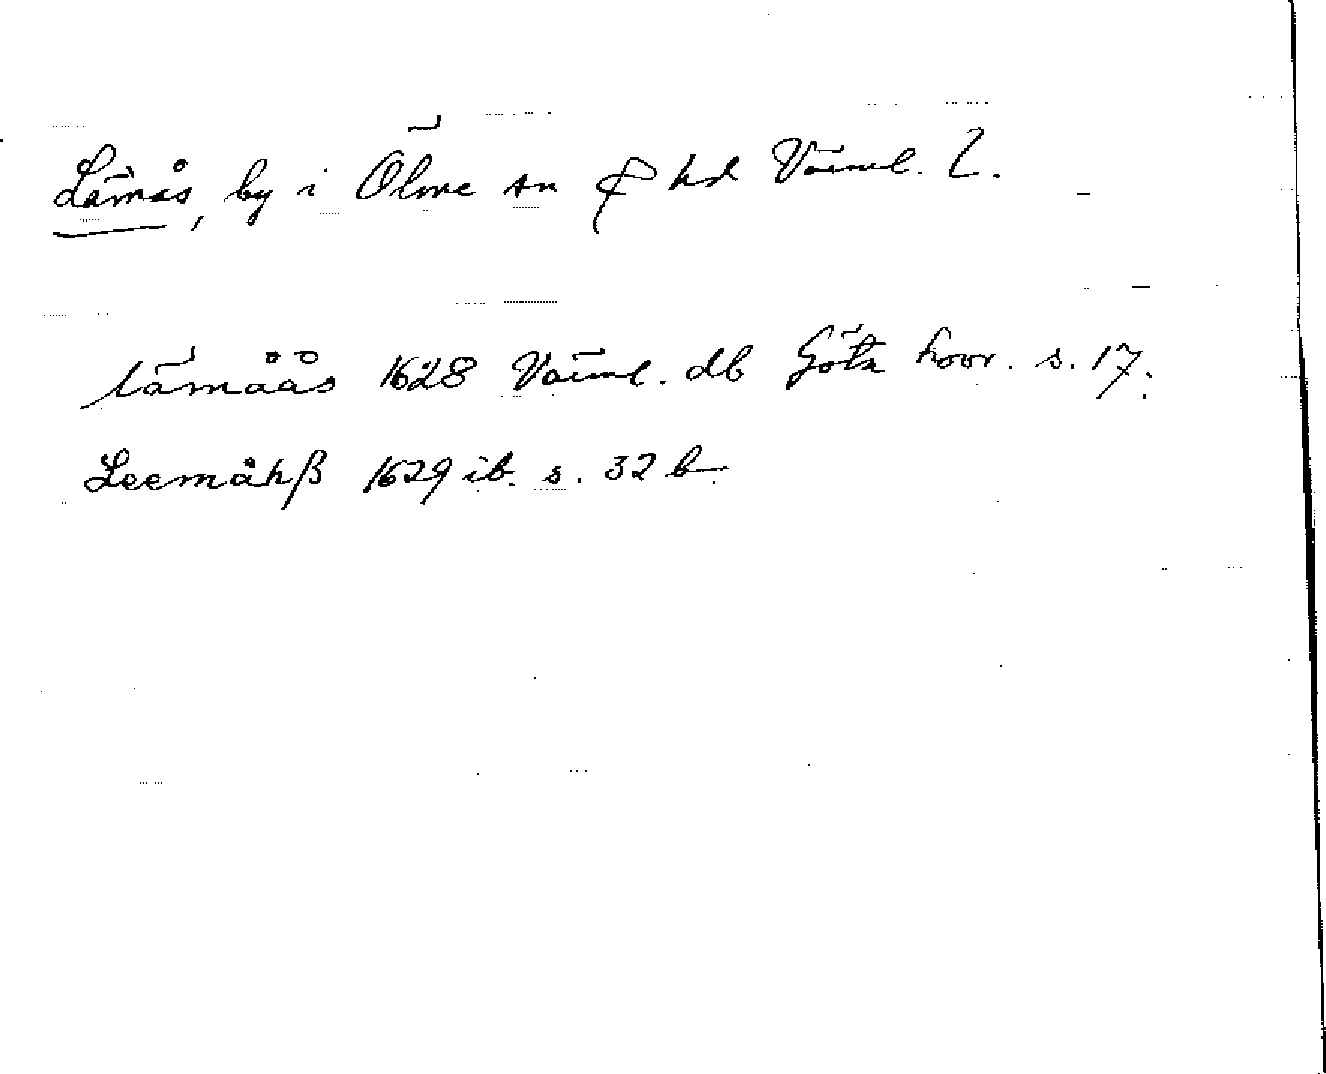 Lämås, by i Ölme sn & hd Värml. l.
lämåås 1628 Värml. db Göta hovr. s. 17.
Leemåhß 1629 ib. s. 32 b